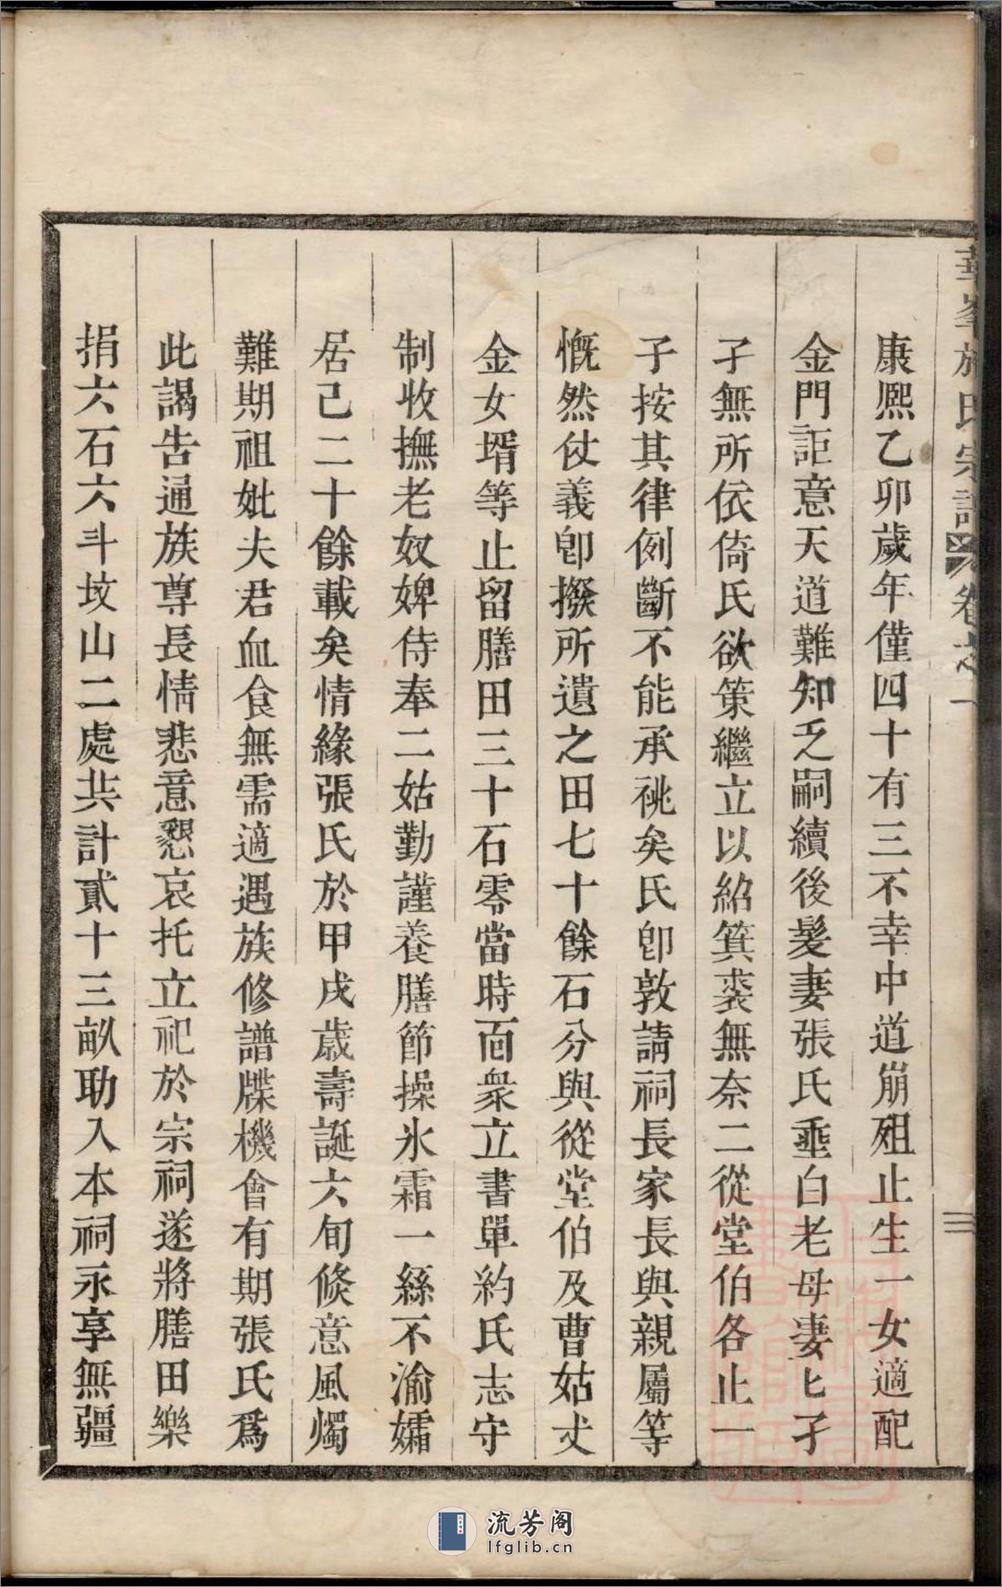 華峯施氏宗譜 卷之一
三
康熙乙卯歲年僅四十有三不幸中道崩殂止生一女適配
金門詎意天道難知乏嗣續後髮妻張氏垂白老母妻匕孑
孑無所依倚氏欲策繼立以紹箕裘無奈二從堂伯各止一
子按其律例斷不能承祧矣氏卽敦請祠長家長與親屬等
慨然仗義卽撥所遺之田七十餘石分與從堂伯及曹姑丈
金女壻等止留膳田三十石零當時面衆立書單約氏志守
制收撫老奴婢侍奉二姑勤謹養膳節操氷霜一絲不渝孀
居已二十餘載矣情緣張氏於甲戌歲壽誕六旬倐意風燭
難期祖妣夫君血食無需適遇族修譜牒機會有期張氏爲
此謁告通族尊長情悲意懇哀托立祀於宗祠遂將膳田樂
捐六石六斗坟山二處共計貳十三畝助入本祠永享無疆
流芳阁
lfglib.cn